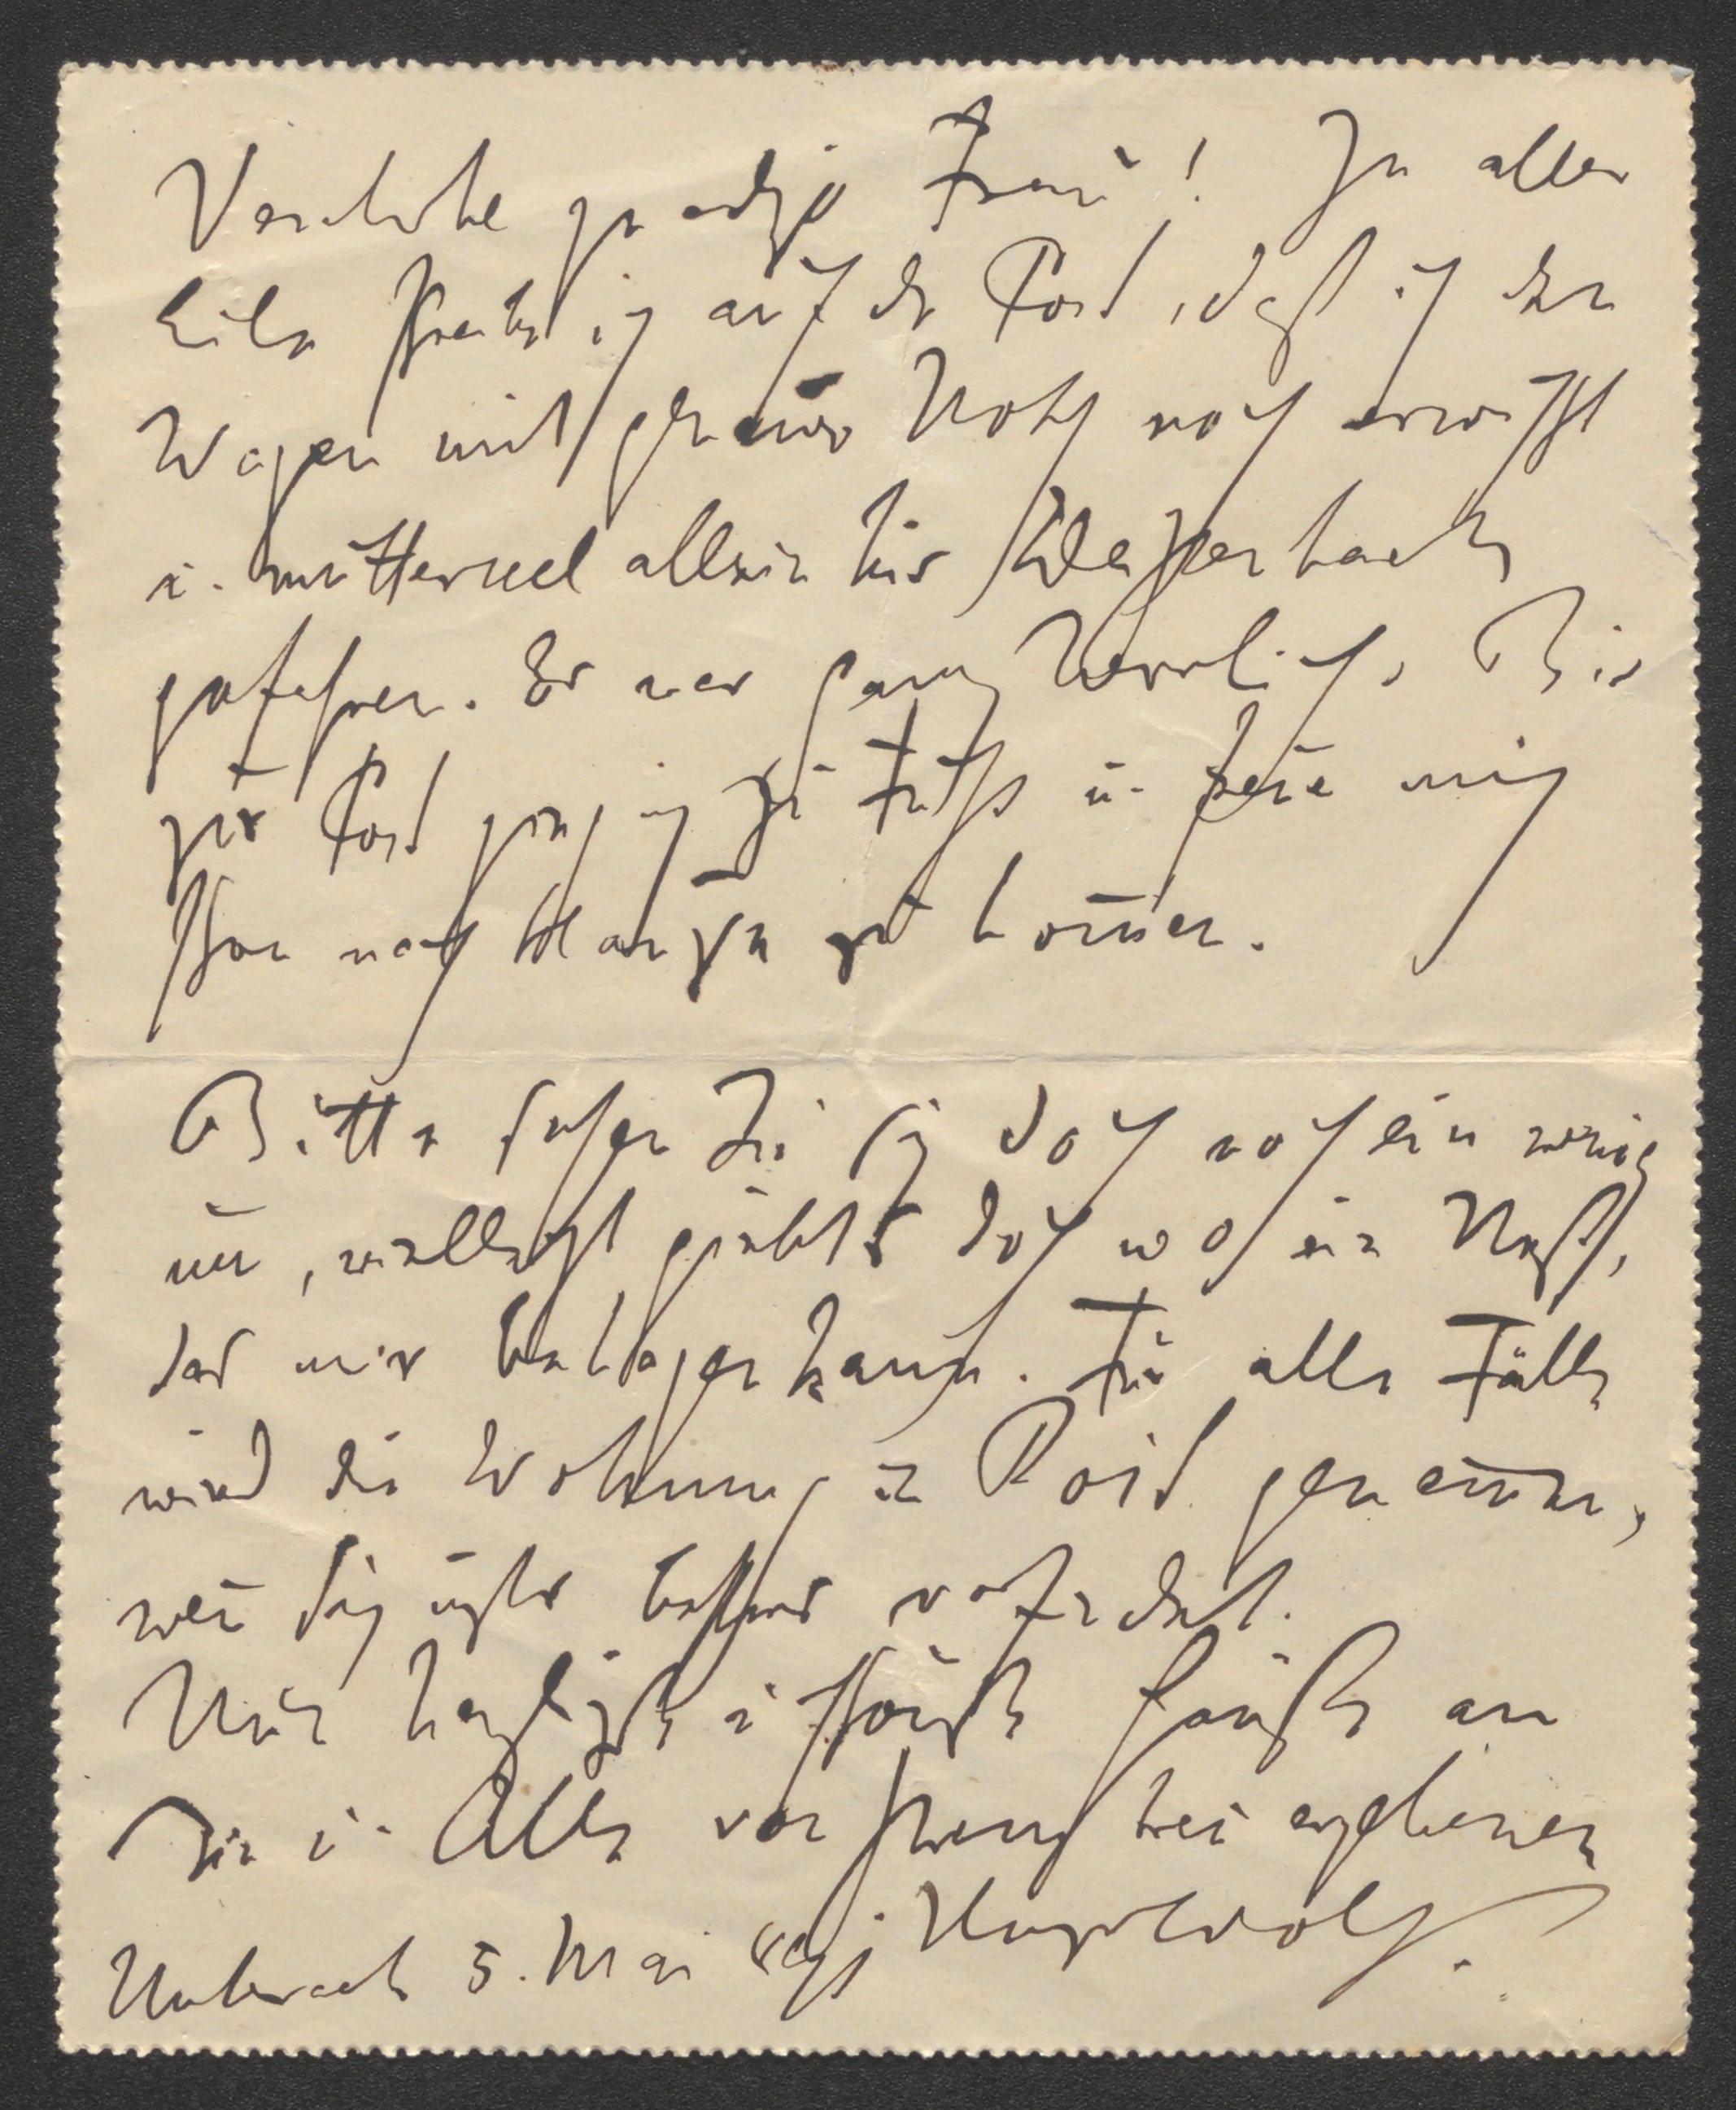 Verehrte gnädige Frau! In aller
Eile schreibe ich auf der Post, daß ich den
Wagen mit genauer Noth noch erwischt
u. mutterseel allein bis Weyerbach
gefahren. Es war ganz herrlich. Bis
zur Post ging ich zu Fuß u. freue mich
schon nach zu kommen.
Bitte sehen Sie sich doch noch ein wenig
um, vielleicht giebts doch wo ein Nest,
das mir behagen kann. Für alle Fälle
wird die Wohnung in Roid genommen,
wenn sich nichts besseres vorfindet.
Nun herzlichste u. schönste Grüße an
Sie u. Alle von Ihrem treu ergebenen
Hugo Wolf.
Unterach 5. Mai